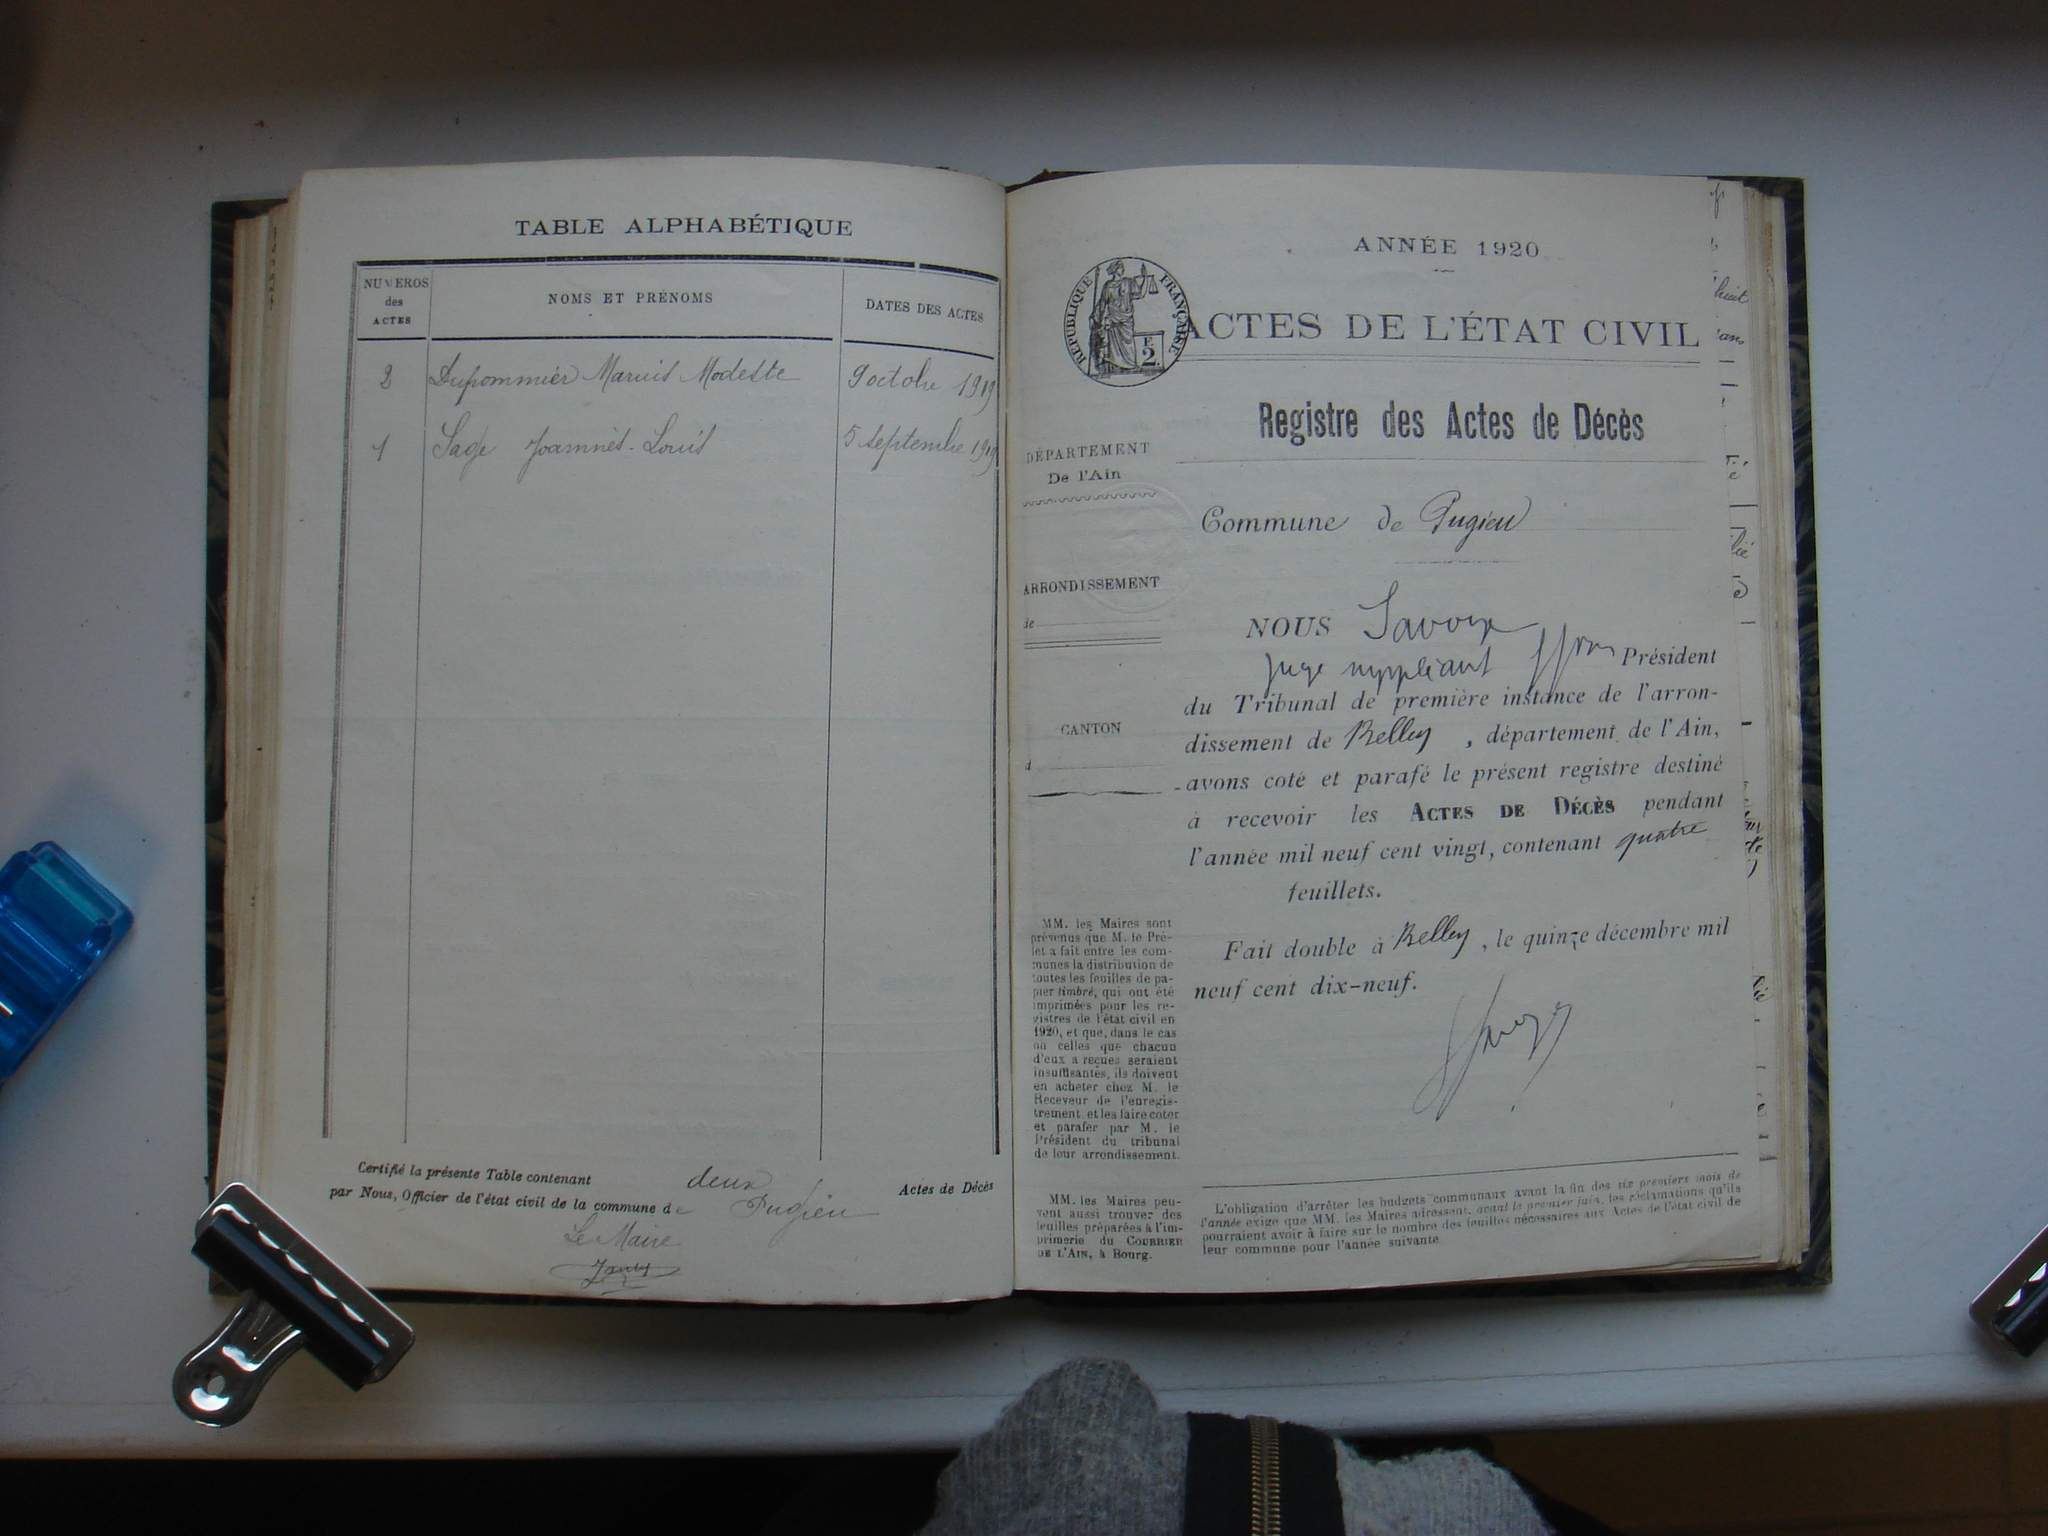 TABLE ALPHABÉTIQUE
NUMEROS
des
ACTES
NOMS ET PRÉNOMS
DATES DES ACTES
2 Dupommier Marius Modeste 9 octobre 1919
1 Sage Joannès-Louis 5 septembre 1919
Certifié la présente Table contenant deux Actes de Décès
par Nous, Officier de l'état civil de la commune de Pugieu
Le Maire
ANNÉE 1920
RÉPUBLIQUE FRANÇAISE
F.
2
ACTES DE L'ÉTAT CIVIL
Registre des Actes de Décès
DÉPARTEMENT
De l'Ain
Commune de Pugieu
ARRONDISSEMENT
de
CANTON
d
NOUS Savoye
juge suppléant Président
du Tribunal de première instance de l'arron-
dissement de Belley, département de l'Ain,
avons coté et parafé le présent registre destiné
à recevoir les ACTES DE DÉCÈS pendant
l'année mil neuf cent vingt, contenant quatre
feuillets.
Fait double à Belley, le quinze décembre mil
neuf cent dix-neuf.
MM. les Maires sont
prévenus que M. le Pré-
fet a fait entre les com-
munes la distribution de
toutes les feuilles de pa-
pier timbré, qui ont été
imprimées pour les re-
gistres de l'état civil en
1920, et que, dans le cas
où celles que chacun
d'eux a reçues seraient
insuffisantes, ils doivent
en acheter chez M. le
Receveur de l'enregis-
trement et les faire coter
et parafer par M. le
Président du tribunal
de leur arrondissement.
MM. les Maires peu-
vent aussi trouver des
feuilles préparées à l'im-
primerie du COURRIER
DE L'AIN, à Bourg.
L'obligation d'arrêter les budgets communaux avant la fin des six premiers mois de
l'année exige que MM. les Maires adressent, avant le premier juin, les réclamations qu'ils
pourraient avoir à faire sur le nombre des feuilles nécessaires aux Actes de l'état civil de
leur commune pour l'année suivante